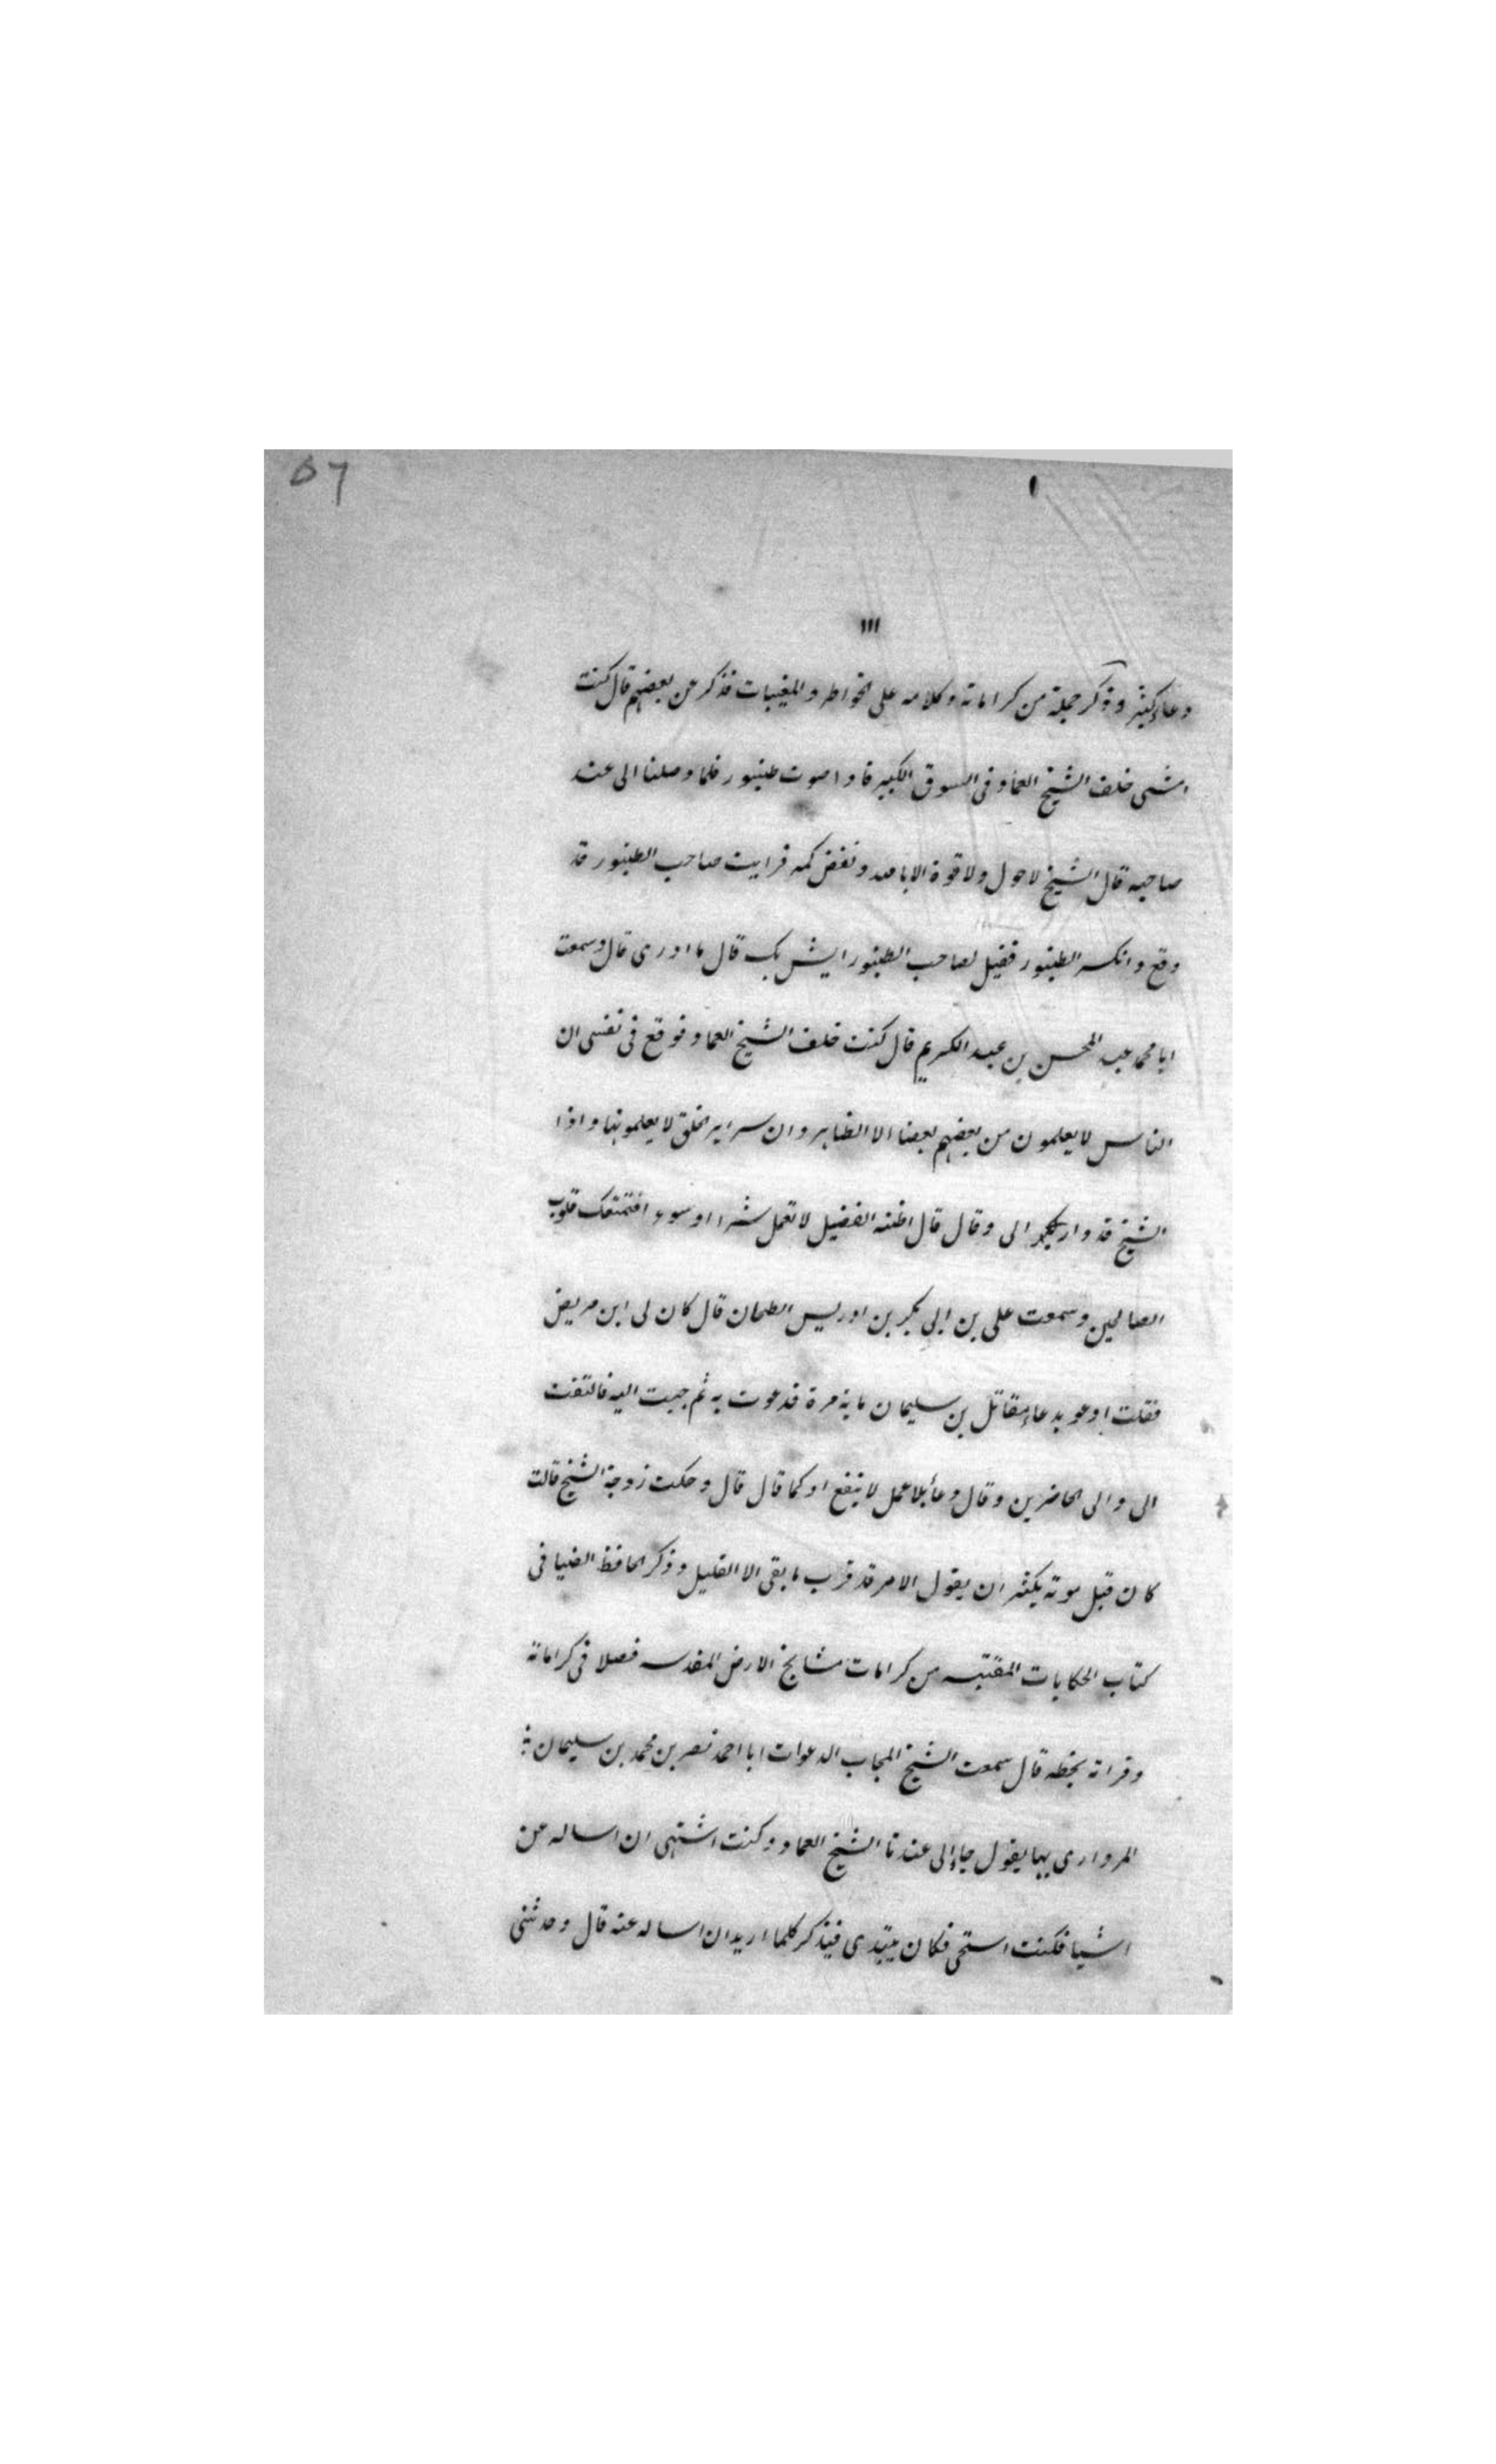 ٥٦
١١١
دعاء كثير وذكر جملة من كراماته وكلامه على الخواطر والمغيبات فذكر عن بعضهم قال كنت
امشى خلف الشيخ العماد فى السوق الكبير فاذا صوت طنبور فلما وصلنا الى عند
صاحبه قال الشيخ لا حول ولا قوة الا بالله ونفض كمه فرايت صاحب الطنبور قد
وقع وانكسر الطنبور فقيل لصاحب الطنبور ايش بك قال ما ادرى قال وسمعت
ابا محمد عبد المحسن بن عبد الكريم قال كنت خلف الشيخ العماد فوقع فى نفسى ان
الناس لا يعلمون من بعضهم بعضا الا الظاهر وان سراير الخلق لا يعلمونها واذا
الشيخ قد الى وقال قال اظنه الفضيل لا تعمل شرا او سوء افتمقتك قلوب
الصالحين وسمعت على بن ابى بكر بن ادريس الطحان قال كان لى ابن مريض
فقلت ادعو بدعاء مقاتل بن سليمان ماية مرة فدعوت به ثم جيت اليه فالتفت
الى والى الحاضرين وقال دعأ بلا عمل لا ينفع او كما قال قال وحكت زوجة الشيخ قالت
كان قبل موته يكثر ان يقول الامر قد قرب ما بقى الا القليل وذكر الحافظ الضيا فى
كتاب الحكايات المقتبسه من كرامات مشايخ الارض المقدسه فصلا فى كراماته
وقراته بخطه قال سمعت الشيخ المجاب الدعوات ابا احمد نصر بن محمد بن سليمان
المرداوى بها يقول جاء الى عندنا الشيخ العماد وكنت اشتهى ان اساله عن
اشيا فكنت استحى فكان يبتدى فيذكر كلما اريد ان اساله عنه قال وحدثنى